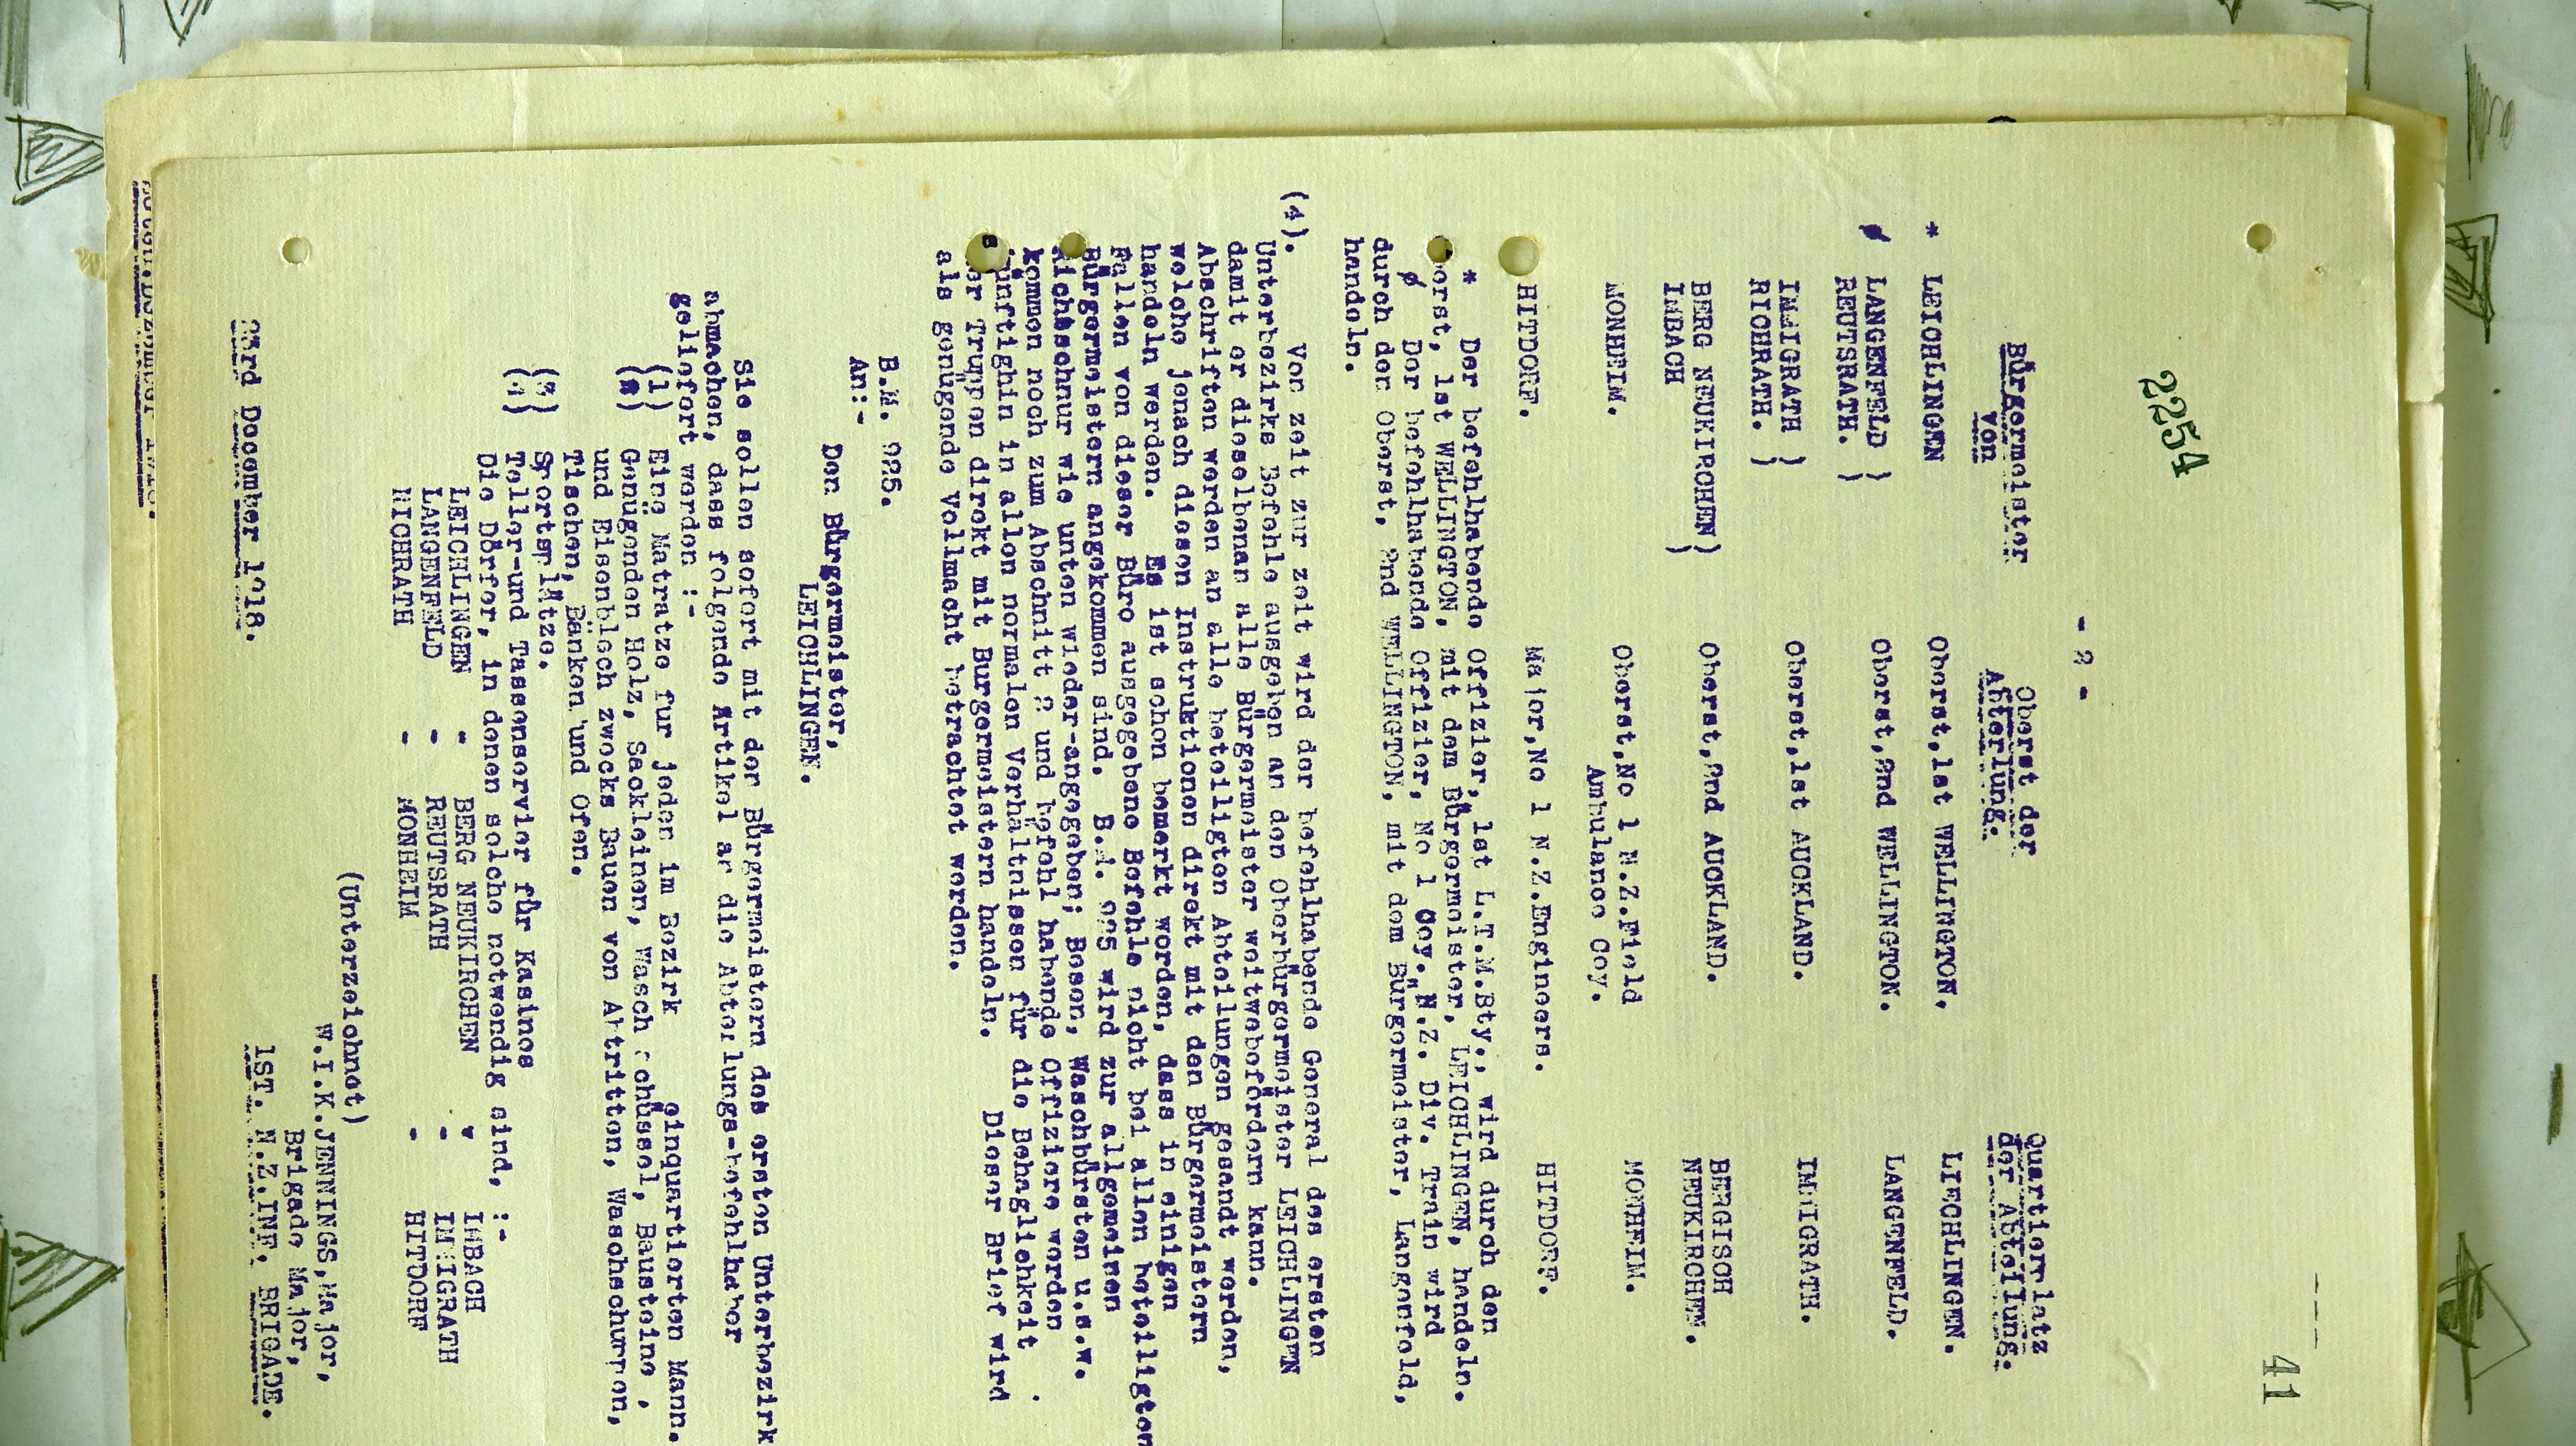 41
2254
- 2 -
Bürgermeister von
Oberst der Abteilung.
Quartierplatz der Abteilung.
* LEICHLINGEN Oberst,1st WELLINGTON. LIECHLINGEN.
ø LANGENFELD ) Oberst,2nd WELLINGTON. LANGENFELD.
REUTSRATH. )
IMMIGRATH ) Oberst,1st AUCKLAND. IMMIGRATH.
RICHRATH. )
BERG NEUKIRCHEN) Oberst,2nd AUCKLAND. BERGISCH
IMBACH ) NEUKIRCHEN.
MONHEIM. Oberst,No 1 N.Z.Field MONHEIM.
Ambulance Coy.
HITDORF. Major,No 1 N.Z.Engineers. HITDORF.
* Der befehlhabende Offizier, 1st L.T.M.Bty., wird durch den
berst, 1st WELLINGTON, mit dem Bürgermeister, LEICHLINGEN, handeln.
ø Der befehlhabende Offizier, No 1 Coy. N.Z. Div. Train wird
durch der Oberst, 2nd WELLINGTON, mit dem Burgermeister, Langenfeld,
handeln.
(4). Von zeit zur zeit wird der befehlhabende General des ersten
Unterbezirks Befehle ausgeben an den Oberbürgermeister LEICHLINGEN
damit er dieselbenan alle Bürgermeister weitwebefördern kann.
Abschriften werden an alle beteiligten Abteilungen gesandt werden,
welche jenach diesen Instruktionen direkt mit den Bürgermeistern
handeln werden. Es ist schon bemerkt worden, dass in einigen
Fallen von dieser Büro ausgegebene Befehle nicht bei allen beteiligten
Bürgermeistern angekommen sind. B.M. 925 wird zur allgemeinen
Richtschnur wie unten wieder-angegeben; Besen, Waschbürsten u.s.w.
kommen noch zum Abschnitt 2 und befehl habende Offiziere werden
künftighin in allen normalen Verhältnissen für die Behaglichkeit .
der Truppen direkt mit Burgermeistern handeln. Dieser Brief wird
als genügende Vollmacht betrachtet werden.
B.M. 925.
An:-
Den Bürgermeister,
LEICHLINGEN.
Sie sollen sofort mit der Bürgermeistern des ersten Unterbezirk
abmachen, dass folgende Artikel an die Abteilungs-befehlhaber
geliefort werden :-
(1) Eine Matratze fur jeden im Bezirk einquartierten Mann.
(2) Genügenden Holz, Sackleinen, Wasch schüssel, Bausteine ,
und Eisenblech zwecks Bauen von Abtritten, Waschschuppen,
Tischen, Bänken und Ofen.
(3) Sportsplätze.
(4) Teller-und Tassenservier für Kasinos
Die Dörfer, in denen solche notwendig sind, :-
LEICHLINGEN - BERG NEUKIRCHEN - IMBACH
LANGENFELD - REUTSRATH - IMMIGRATH
RICHRATH - MONHEIM - HITDORF
(Unterzeichnet)
W.I.K.JENNINGS,Major,
Brigade Major,
23rd December 1918. 1ST. N.Z.INF. BRIGADE.